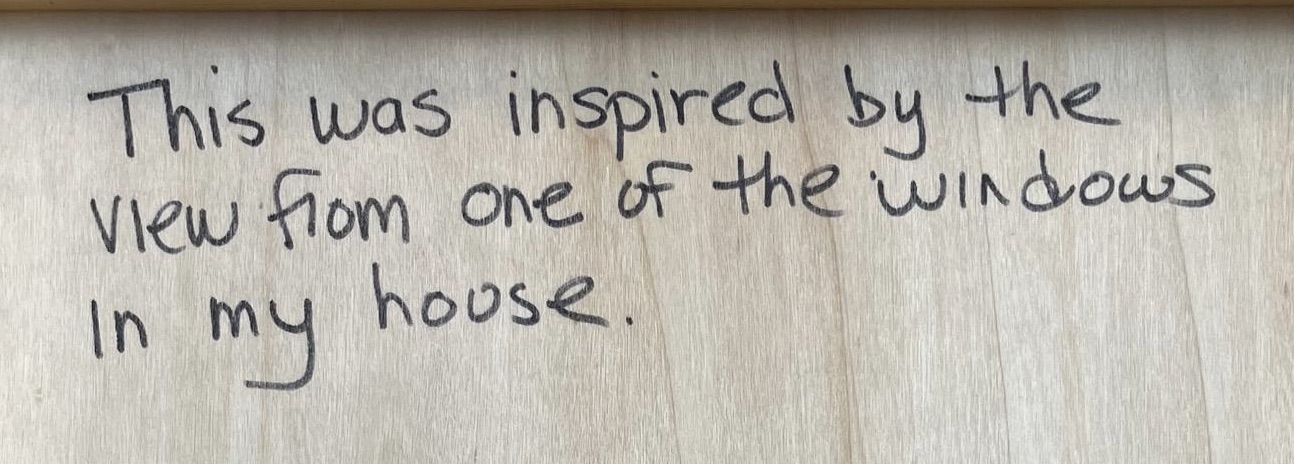 This was inspired by the
view from one of the windows
in my house.